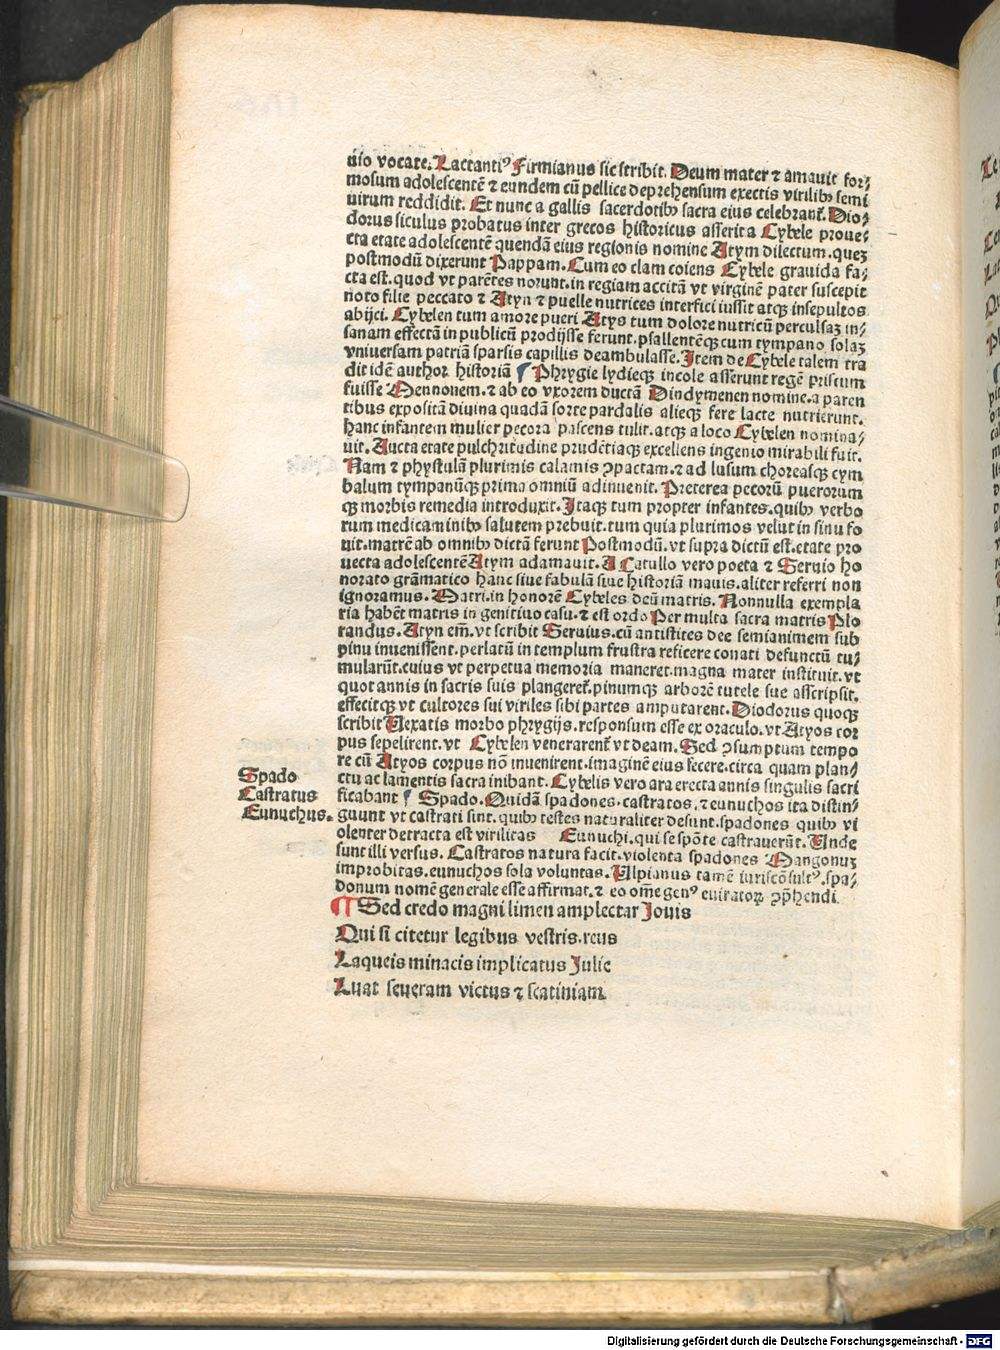 uio vocate. Lactantiꝰ Firmianus sic scribit. Deum mater ⁊ amauit for⸗
mosum adolescentē ⁊ eundem cū pellice deprehensum exectis virilibꝫ semi
uirum reddidit. Et nunc a gallis sacerdotibꝫ sacra eius celebrant̄. Dio⸗
dorus siculus probatus inter grecos historicus asserit a Cybele proue⸗
cta etate adolescentē quendā eius regionis nomine Atym dilectum. quez
postmodū dixerunt Pappam. Cum eo clam coiens Cybele grauida fa⸗
cta est. quod vt parētes norunt. in regiam accitā vt virginē pater suscepit
noto filie peccato ⁊ Atyn ⁊ puelle nutrices interfici iussit atqꝫ insepultos
abijci. Cybelen tum amore pueri Atys tum dolore nutricū perculsaꝫ in⸗
sanam effectā in publicū prodijsse ferunt. psallentēqꝫ cum tympano solaꝫ
vniuersam patriā sparsis capillis deambulasse. Item de Cybele talem tra
dit idē author historiā ¶ Phrygie lydieqꝫ incole asserunt regē priscum
fuisse Mennonem. ⁊ ab eo vxorem ductā Dindymenen nomine. a paren
tibus expositā diuina quadā sorte pardalis alieqꝫ fere lacte nutrierunt.
hanc infantem mulier pecora pascens tulit. atqꝫ a loco Cybelen nomina⸗
uit. Aucta etate pulchritudine prudētiaqꝫ excellens ingenio mirabili fuit.
Nam ⁊ phystulā plurimis calamis ꝯpactam. ⁊ ad lusum choreasqꝫ cym
balum tympanūqꝫ prima omniū adinuenit. Preterea pecorū puerorum
qꝫ morbis remedia introduxit. Itaqꝫ tum propter infantes. quibꝫ verbo
rum medicaminibꝫ salutem prebuit. tum quia plurimos velut in sinu fo
uit. matrē ab omnibꝫ dictā ferunt Postmodū. vt supra dictū est. etate pro
uecta adolescentē Atym adamauit. A Catullo vero poeta ⁊ Seruio ho
norato grāmatico hanc siue fabulā siue historiā mauis. aliter referri non
ignoramus. Matri. in honorē Cybeles deū matris. Nonnulla exempla
ria habēt matris in genitiuo casu. ⁊ est ordo Per multa sacra matris Plo
randus. Atyn em̄. vt scribit Seruius. cū antistites dee semianimem sub
pinu inuenissent. perlatū in templum frustra reficere conati defunctū tu⸗
mularūt. cuius vt perpetua memoria maneret. magna mater instituit. vt
quot annis in sacris suis plangeret̄. pinumqꝫ arborē tutele sue asscripsit.
effecitqꝫ vt cultores sui viriles sibi partes amputarent. Diodorus quoqꝫ
scribit Uexatis morbo phrygijs. responsum esse ex oraculo. vt Atyos cor
pus sepelirent. vt Cybelen venerarent̄ vt deam. Sed ꝯsumptum tempo
re cū Atyos corpus nō inuenirent. imaginē eius fecere. circa quam plan⸗
ctu ac lamentis sacra inibant. Cybelis vero ara erecta annis singulis sacri
Spado
Castratus
Eunuchus.
ficabant ¶ Spado. Quidā spadones. castratos. ⁊ eunuchos ita distin⸗
guunt vt castrati sint. quibꝫ testes naturaliter desunt. spadones quibꝫ vi
olenter detracta est virilitas Eunuchi. qui se spōte castrauerūt. Unde
sunt illi versus. Castratos natura facit. violenta spadones Mangonuꝫ
improbitas. eunuchos sola voluntas. Ulpianus tamē iuriscōsultꝰ. spa⸗
donum nomē generale esse affirmat. ⁊ eo om̄e genꝰ euiratoꝝ ꝯp̄hendi.
¶ Sed credo magni limen amplectar Jouis
Qui si citetur legibus vestris. reus
Laqueis minacis implicatus Julie
Luat seueram victus ⁊ scatiniam
Digitalisierung gefördert durch die Deutsche Forschungsgemeinschaft - DFG